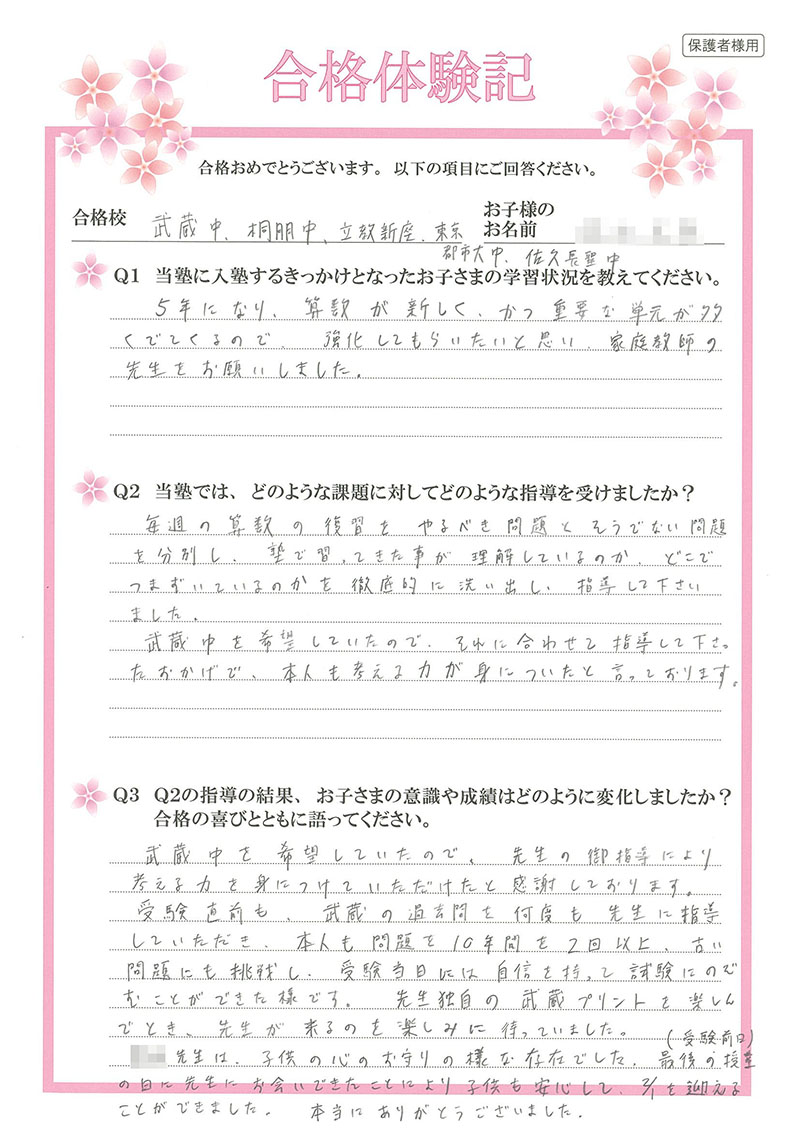 保護者様用
合格体験記
合格おめでとうございます。以下の項目にご回答ください。
合格校 武蔵中、桐朋中、立教新座、東京
都市大中、佐久長聖中
お子様の
お名前
Q1 当塾に入塾するきっかけとなったお子さまの学習状況を教えてください。
5年になり、算数が新しく、かつ重要な単元が多
くでてくるので、強化してもらいたいと思い、家庭教師の
先生をお願いしました。
Q2 当塾では、どのような課題に対してどのような指導を受けましたか？
毎週の算数の復習をやるべき問題とそうでない問題
を分別し、塾で習ってきた事が理解しているのか、どこで
つまずいているのかを徹底的に洗い出し、指導して下さい
ました。
武蔵中を希望していたので、それに合わせて指導して下さっ
たおかげで、本人も考える力が身についたと言っております。
Q3 Q2の指導の結果、お子さまの意識や成績はどのように変化しましたか？
合格の喜びとともに語ってください。
武蔵中を希望していたので、先生の御指導により
考える力を身につけていただけたと感謝しております。
受験直前も、武蔵の過去問を何度も先生に指導
していただき、本人も問題を10年間を2回以上、古い
問題にも挑戦し、受験当日には自信を持って試験にのぞ
むことができた様です。先生独自の武蔵プリントを楽しん
でとき、先生が来るのを楽しみに待っていました。
(受験前日)
先生は、子供の心のお守りの様な存在でした。最後の授業
の日に先生にお会いできたことにより子供も安心して、2/1を迎える
ことができました。本当にありがとうございました。